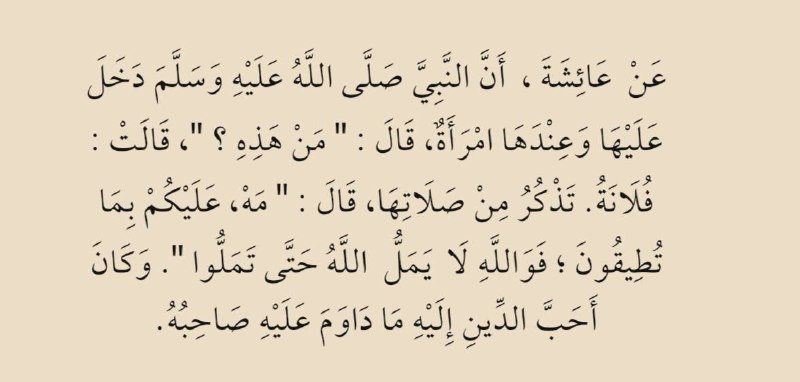 عَنْ عَائِشَةَ ، أَنَّ النَّبِيَّ صَلَّى اللَّهُ عَلَيْهِ وَسَلَّمَ دَخَلَ
عَلَيْهَا وَعِنْدَهَا امْرَأَةٌ، قَالَ : " مَنْ هَذِهِ ؟ "، قَالَتْ :
فُلَانَةُ. تَذْكُرُ مِنْ صَلَاتِهَا، قَالَ : " مَهْ، عَلَيْكُمْ بِمَا
تُطِيقُونَ ؛ فَوَاللَّهِ لَا يَمَلُّ اللَّهُ حَتَّى تَمَلُّوا ". وَكَانَ
أَحَبَّ الدِّينِ إِلَيْهِ مَا دَاوَمَ عَلَيْهِ صَاحِبُهُ.